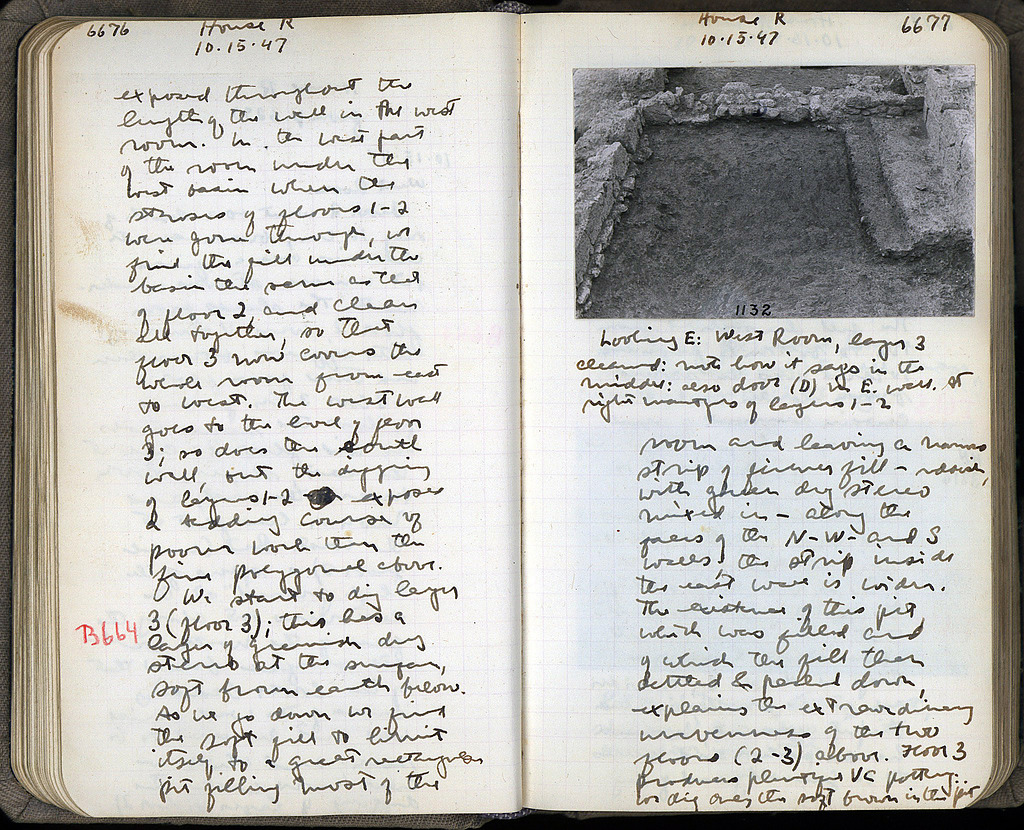 6676
House R
10.15.47
exposed throughout the
length of the wall in the west
room. In the west part
of the room under the
west basin when the
stereos of floors 1-2
were gone through, we
find the fill under the
basin the same as that
of floor 2, and clean
all together, so that
floor 3 now covers the
whole room from east
to west. The west wall
goes to the level of floor
3; so does the south
wall, but the digging
of layers 1-2 exposes
a bedding course of
poorer work than the
fine polygonal above.
We start to dig layer
B664
3 (floor 3); this has a
layer of greenish dry
stereo at the surface,
soft brown earth below.
As we go down we find
the soft fill to limit
itself to a great rectangular
pit filling most of the
6677
House R
10.15.47
1132
Looking E: West Room, layer 3
cleaned: note how it sags in the
middle: also door (D) in E. wall. At
right of layers 1-2
room and leaving a narrow
strip of firmer fill - reddish,
with green dry stereo
mixed in - along the
faces of the N-W- and S
walls; the strip inside
the east wall is wider.
The existence of this pit
which was filled and
of which the fill then
settled & packed down,
explains the extraordinary
unevenness of the two
floors (2-3) above. Floor 3
produces plentiful VC pottery.
We dig over the soft brown in the pit